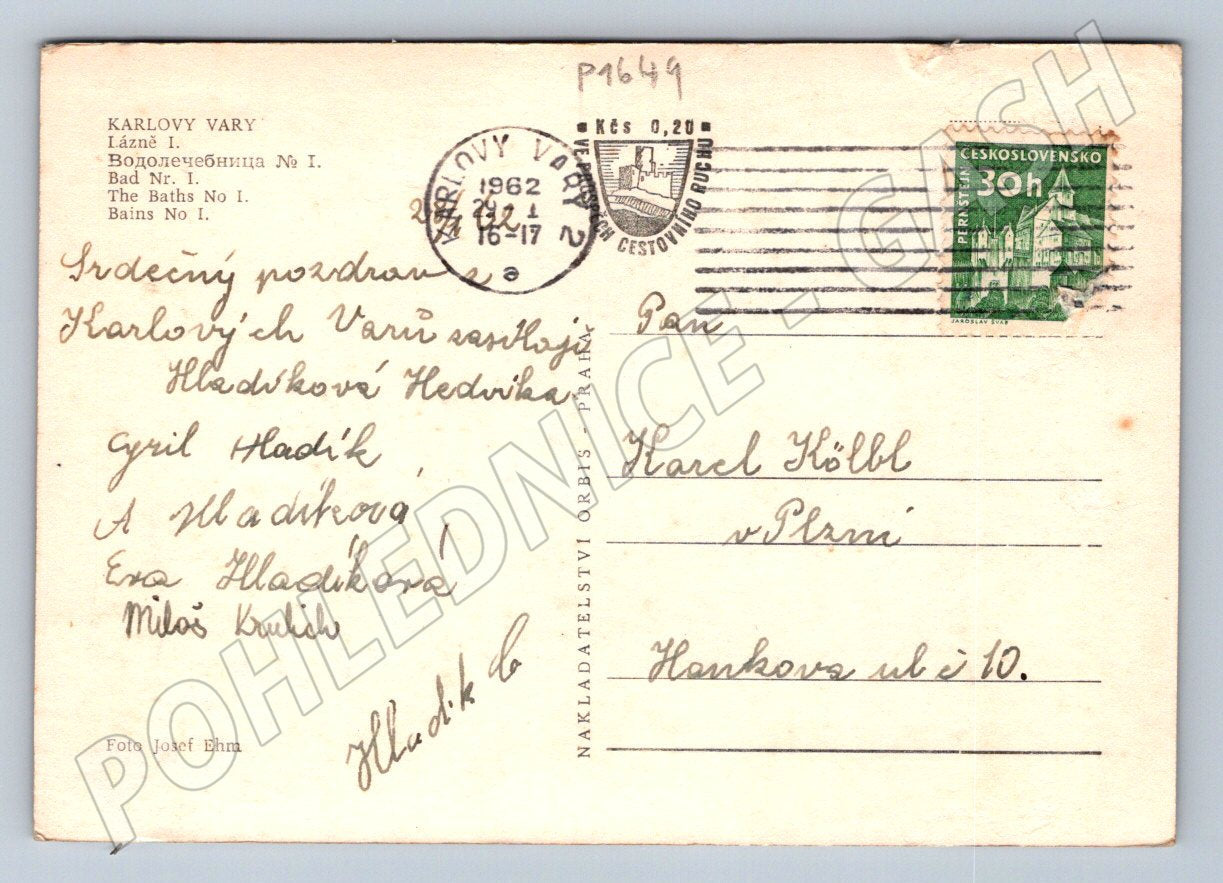 P1649
KARLOVY VARY
Lázně I.
Водолечебница № I.
Bad Nr. I.
The Baths No I.
Bains No I.
KARLOVY VARY 2
1962
29 - 1
16-17
a
Kčs 0,20
VE PROSPĚCH CESTOVNÍHO RUCHU
ČESKOSLOVENSKO
30h
PERNŠTEJN
JAROSLAV ŠVAB
Srdečný pozdrav z
Karlových Varů zasílají
Hladíková Hedvika
Cyril Hladík
A Hladíková
Eva Hladíková
Miloš
Hladík C
Foto Josef Ehm
NAKLADATELSTVÍ ORBIS - PRAHA
Pan
Karel Kölbl
v Plzni
Hankova ul č 10.
POHLEDNICE - GASH